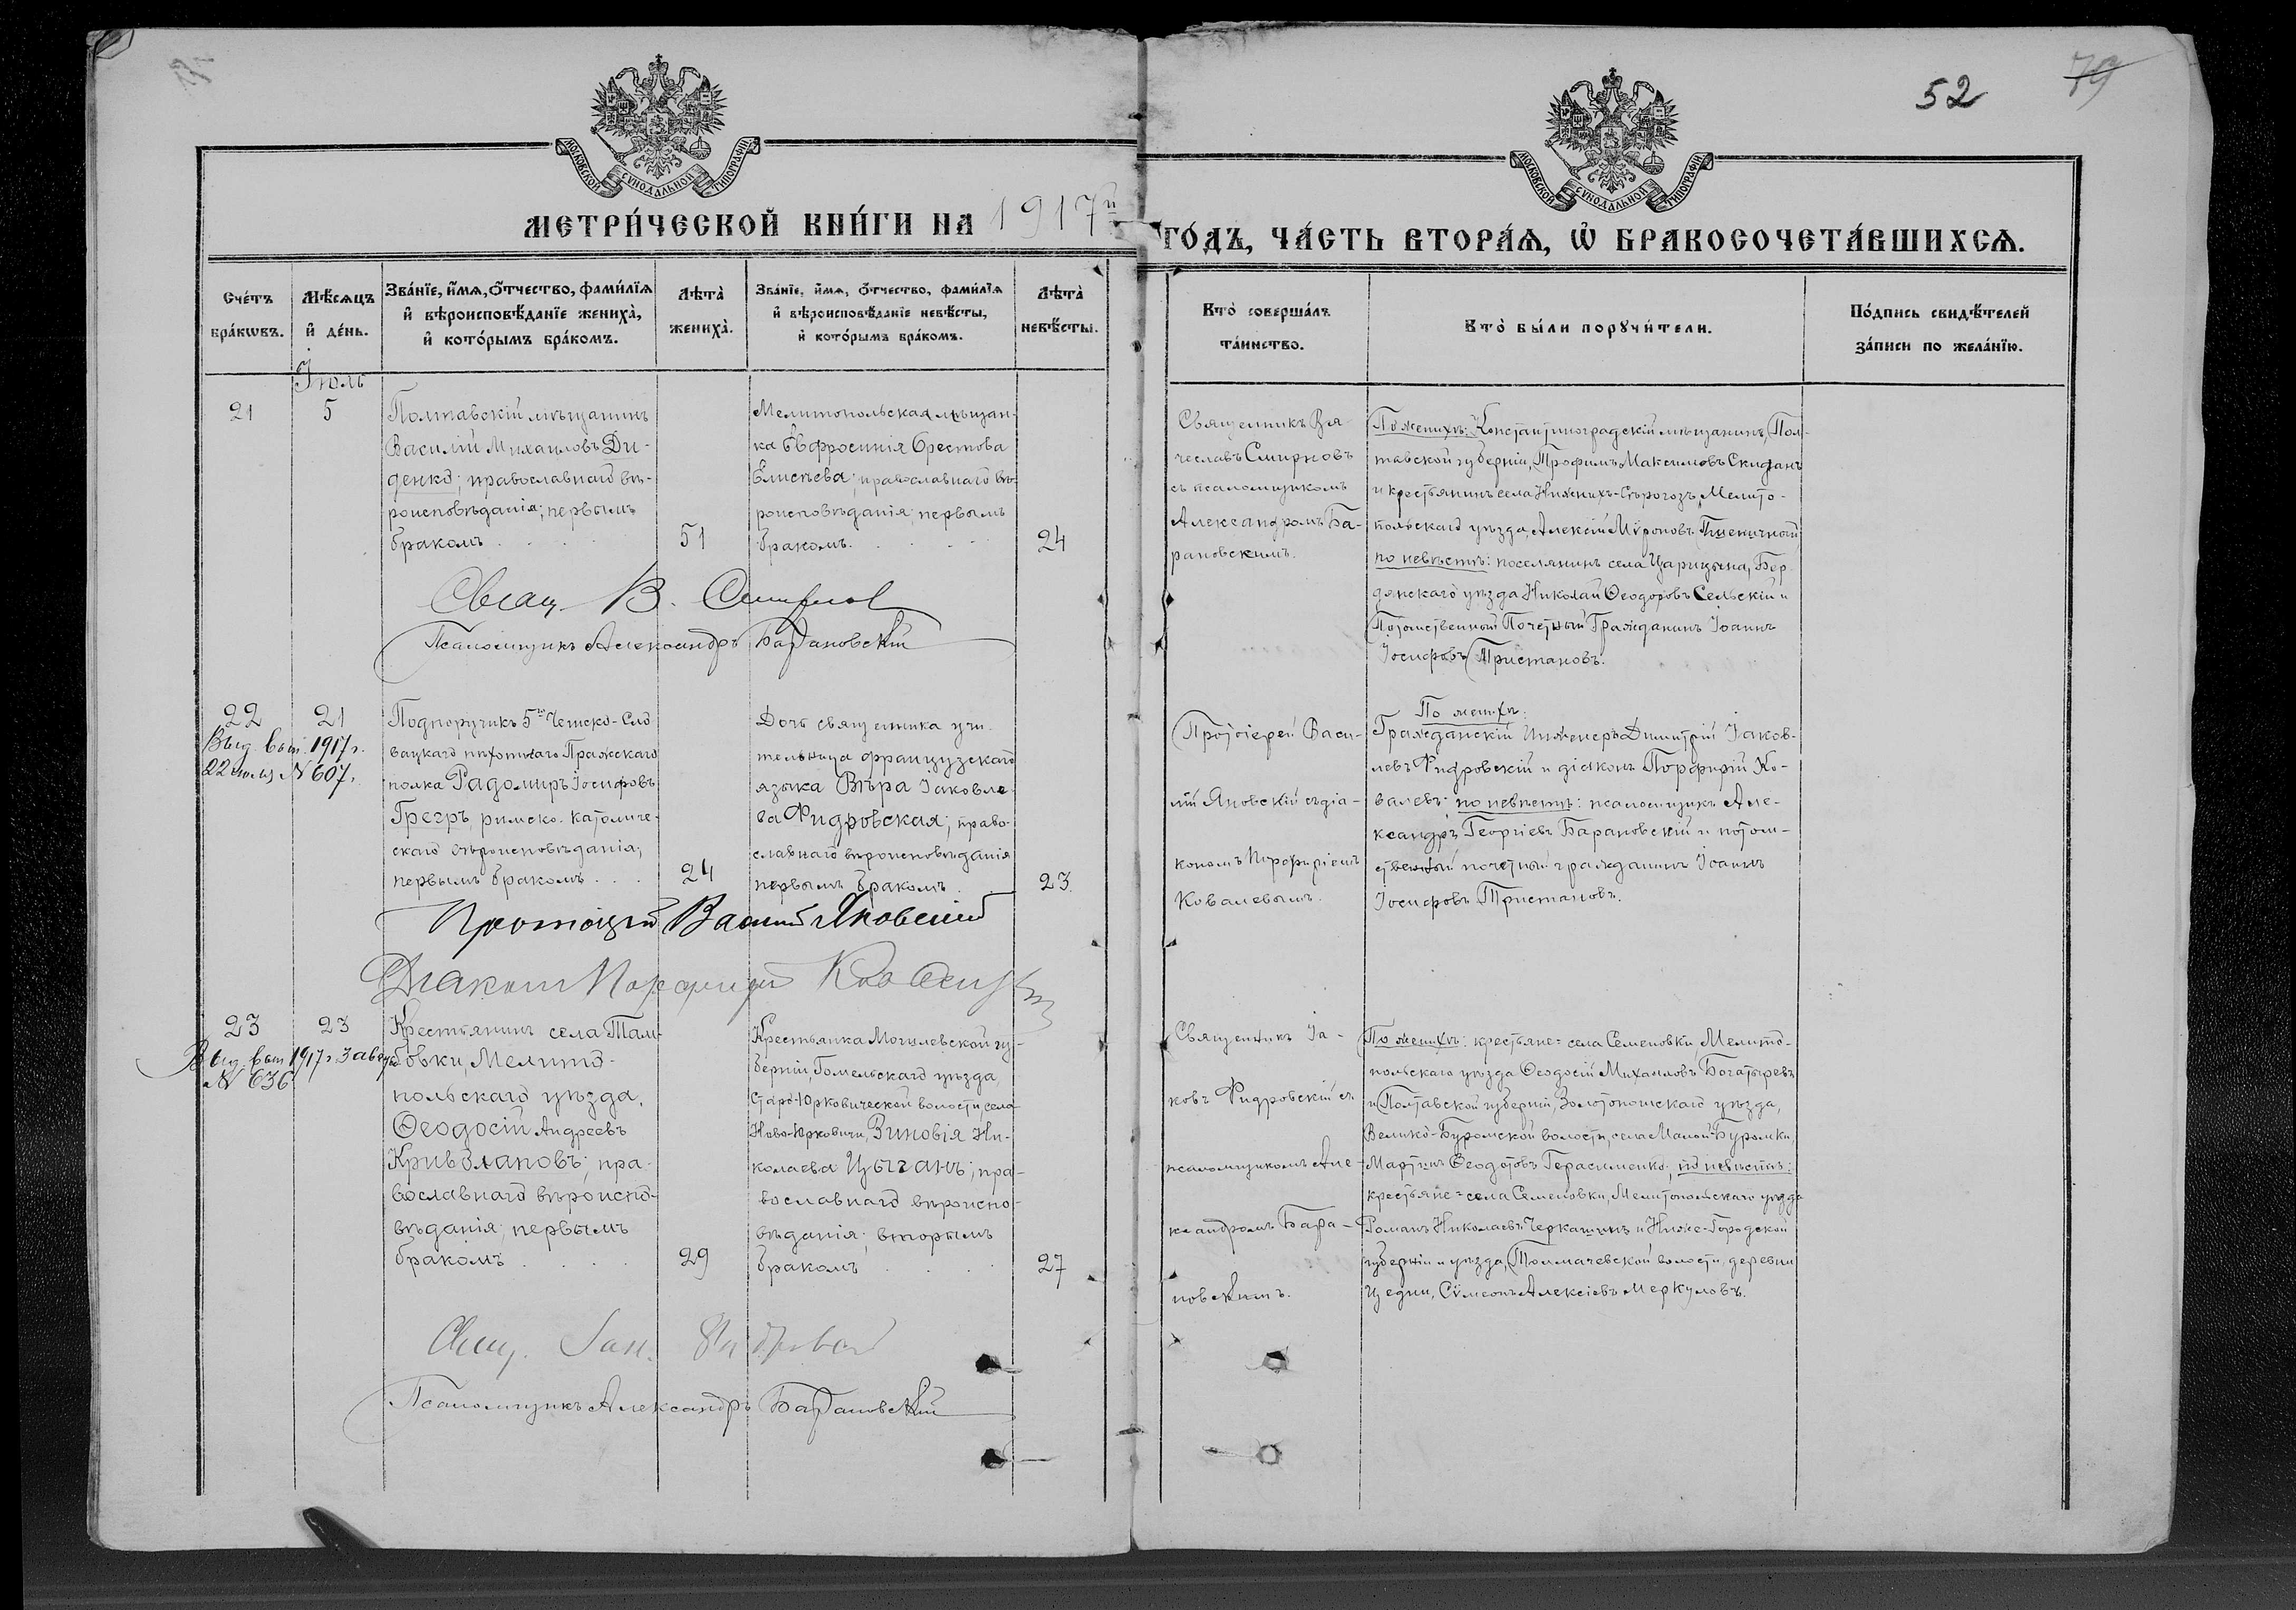 52
79
МОСКОВСКОЙ СУНОДАЛЬНОЙ ТИПОГРАФІИ
МОСКОВСКОЙ СУНОДАЛЬНОЙ ТИПОГРАФІИ
МЕТРИ́ЧЕСКОЙ КНИ́ГИ НА 1917й
ГО́ДЪ, ЧА́СТЬ ВТОРА́Ѧ, Ѽ БРАКОСОЧЕТА́ВШИХСѦ.
Сче́тъ
бра́кѡвъ.
Мѣ́сѧцъ
и҆ де́нь.
Зва́нїе, и҆́мѧ, ѻ҆́тчество, фами́лїѧ
и҆ вѣроисповѣ́данїе жениха̀,
и҆ кото́рымъ бра́комъ.
Лѣта̀
жениха̀.
Зва́нїе, и҆́мѧ, ѻ҆́тчество, фами́лїѧ
и҆ вѣроисповѣ́данїе невѣ́сты,
и҆ кото́рымъ бра́комъ.
Лѣта̀
невѣ́сты.
Кто̀ соверша́лъ
та́инство.
Кто̀ бы́ли порꙋчи́тели.
По́дпись свидѣ́телей
за́писи по жела́нїю.
Іюль
21
5
Полтавскій мѣщанинъ
Василій Михаиловъ Ди-
денко; православнаго вѣ-
роисповѣданія; первымъ
бракомъ
51
Мелитопольская мѣщан-
ка Евфросинія Орестова
Елисѣева; православнаго вѣ-
роисповѣданія; первымъ
бракомъ.
24
Священникъ Вя-
чеславъ Смирновъ
съ псаломщикомъ
Александромъ Ба-
рановскимъ.
По женихѣ: Константиноградскій мѣщанинъ, Пол-
тавской губерніи, Трофимъ Максимовъ Скидань
и крестьянинъ села Нижнихъ-Сѣрогозъ, Мелито-
польскаго уѣзда, Алексій Мѵроновъ Пшеничный
по невѣстѣ: поселянинъ села Царицына, Бер-
дянскаго уѣзда Николай Ѳеодоровъ Сельскій и
Потомственный Почетный Гражданинъ Іоаннъ
Іосифовъ Тристановъ.
Свящ. В. Смирнов
Псаломщикъ Александръ Барановскій
22
21
Выд. вып. 1917 г.
22 іюля N 607.
Подпоручикъ 5го Чешско-Сло
вацкаго пѣхотнаго Пражскаго
полка Радомиръ Іосифовъ
Грегръ, римско-католиче-
скаго вѣроисповѣданія;
первымъ бракомъ
24
Дочь священника учи-
тельница французскаго
языка Вѣра Іаковле-
ва Фидровская; право-
славнаго вѣроисповѣданія
первымъ бракомъ
23.
Протоіерей Васи-
лій Яновскій съ діа-
кономъ Порфиріемъ
Ковалевымъ.
По женихѣ:
Гражданскій Инженеръ Димитрій Іаков-
левъ Фидровскій и діаконъ Порфирій Ко-
валевъ; по невѣстѣ: псаломщикъ Але-
ксандръ Георгіевъ Барановскій и потом-
ственный почетный гражданинъ Іоаннъ
Іосифовъ Тристановъ.
Протоіерей Василий Яновский
Диакон Порфирий Ковалев
23
23
Выд. вып. 1917 г. 3 август
N 636
Крестьянинъ села Там-
бовки, Мелито-
польскаго уѣзда,
Ѳеодосій Андреевъ
Криволаповъ; пра-
вославнаго вѣроиспо-
вѣданія; первымъ
бракомъ
29
Крестьянка Могилевской гу-
берніи, Гомельскаго уѣзда,
Старо-Юрковической волости, села
Ново-Юрковичи, Зиновія Ни-
колаева Цыганъ; пра-
вославнаго вѣроиспо-
вѣданія; вторымъ
бракомъ
27
Священникъ Іа-
ковъ Фидровскій съ
псаломщикомъ Але-
ксандромъ Бара-
новскимъ.
По женихѣ: крестьяне = села Семеновки, Мелито-
польскаго уѣзда Ѳеодосій Михаиловъ Богатыревъ
и Полтавской губерніи, Золотоношскаго уѣзда,
Велико-Буромской волости, села Малой-Буромки,
Мартинъ Ѳеодотовъ Герасименко; по невѣстѣ:
крестьяне = села Семеновки, Мелитопольскаго уѣзда
Романъ Николаевъ Черкашинъ и Ниже-Городской
губерніи и уѣзда, Толмачевской волости, деревни
Сѵмеонъ Алексіевъ Меркуловъ.
Свящ. Іак. Фидровский
Псаломщикъ Александръ Барановскій